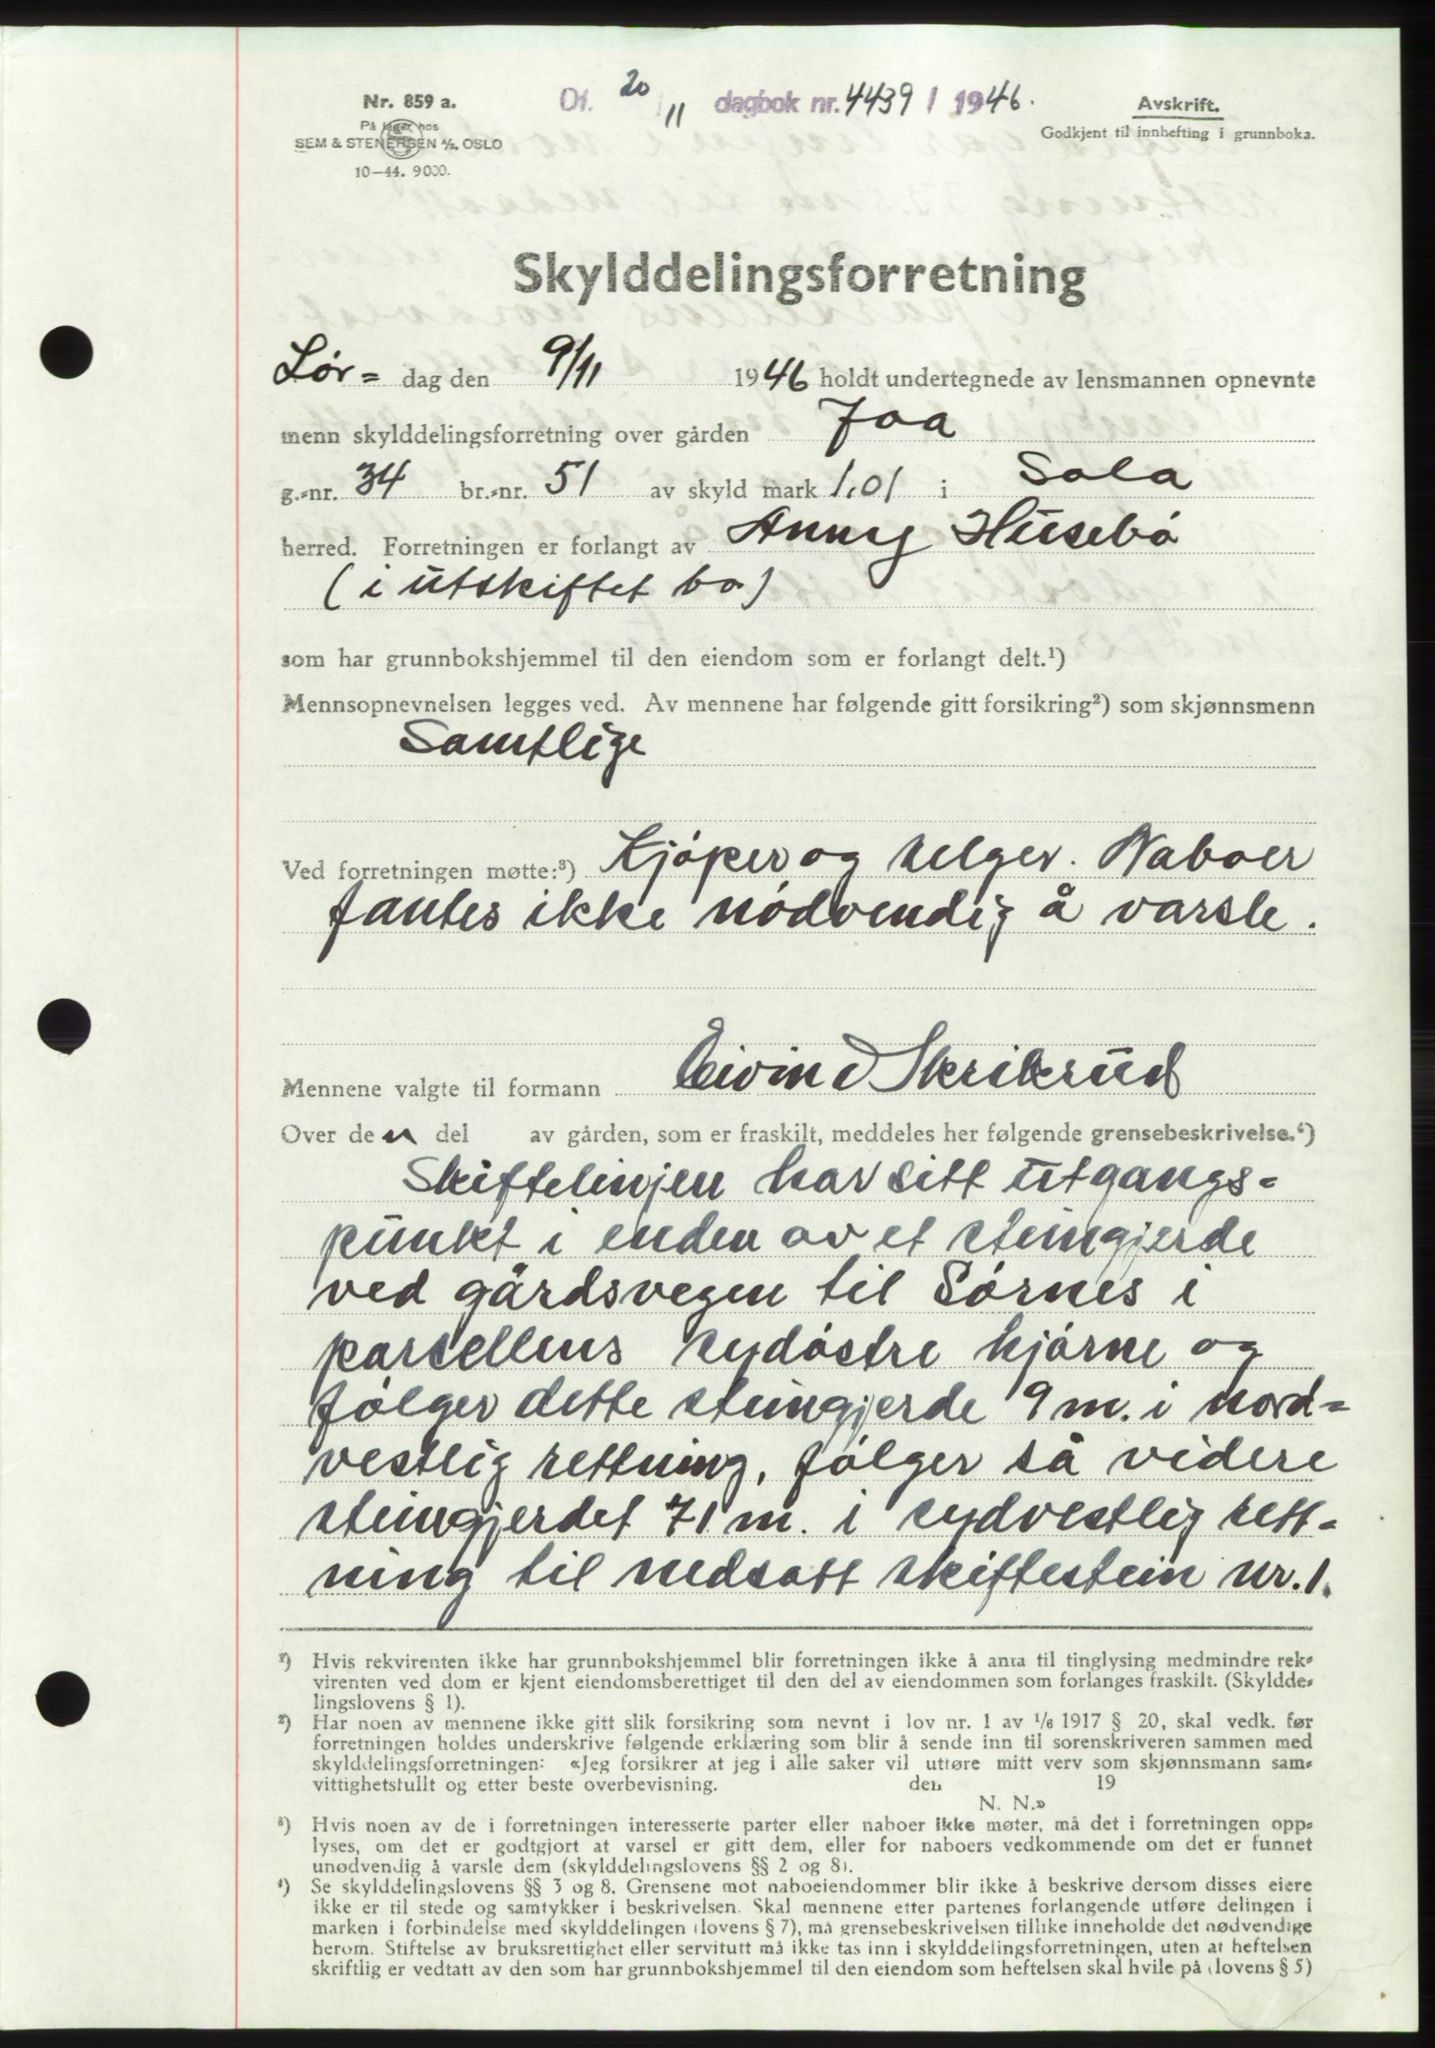 Nr. 859 a.
På lager hos
SEM & STENERSEN A/S. OSLO
10—44. 9000.
Df. 20/11 dagbok nr. 4439 / 1946.
Avskrift.
Godkjent til innhefting i grunnboka.
Skylddelingsforretning
Lør= dag den 9/11 1946 holdt undertegnede av lensmannen opnevnte
menn skylddelingsforretning over gården Joa
g.-nr. 34 br.-nr. 51 av skyld mark 1,01 i Sola
herred. Forretningen er forlangt av Anny Husebø
(i utskiftet bo)
som har grunnbokshjemmel til den eiendom som er forlangt delt.¹)
Mennsopnevnelsen legges ved. Av mennene har følgende gitt forsikring²) som skjønnsmenn
Samtlige
Ved forretningen møtte:³) Kjøper og selger. Naboer
fantes ikke nødvendig å varsle.
Mennene valgte til formann Eivind Skriksrud
Over den del av gården, som er fraskilt, meddeles her følgende grensebeskrivelse.⁴)
Skiftelinjen har sitt utgangs=
punkt i enden av et steingjerde
ved gårdsvegen til Sørnes i
parsellens sydøstre hjørne og
følger dette steingjerde 9 m. i nord=
vestlig rettning, følger så videre
steingjerdet 71 m. i sydvestlig rett=
ning til nedsatt skiftestein nr. 1.
¹) Hvis rekvirenten ikke har grunnbokshjemmel blir forretningen ikke å anta til tinglysing medmindre rek-
virenten ved dom er kjent eiendomsberettiget til den del av eiendommen som forlanges fraskilt. (Skyldde-
lingslovens § 1).
²) Har noen av mennene ikke gitt slik forsikring som nevnt i lov nr. 1 av 1/6 1917 § 20, skal vedk. før
forretningen holdes underskrive følgende erklæring som blir å sende inn til sorenskriveren sammen med
skylddelingsforretningen: «Jeg forsikrer at jeg i alle saker vil utføre mitt verv som skjønnsmann sam-
vittighetsfullt og etter beste overbevisning. den 19
N. N.»
³) Hvis noen av de i forretningen interesserte parter eller naboer ikke møter, må det i forretningen opp-
lyses, om det er godtgjort at varsel er gitt dem, eller for naboers vedkommende om det er funnet
unødvendig å varsle dem (skylddelingslovens §§ 2 og 8).
⁴) Se skylddelingslovens §§ 3 og 8. Grensene mot naboeiendommer blir ikke å beskrive dersom disses eiere
ikke er til stede og samtykker i beskrivelsen. Skal mennene etter partenes forlangende utføre delingen i
marken i forbindelse med skylddelingen (lovens § 7), må grensebeskrivelsen tillike inneholde det nødvendige
herom. Stiftelse av bruksrettighet eller servitutt må ikke tas inn i skylddelingsforretningen, uten at heftelsen
skriftlig er vedtatt av den som har grunnbokshjemmel til den eiendom som heftelsen skal hvile på (lovens § 5)